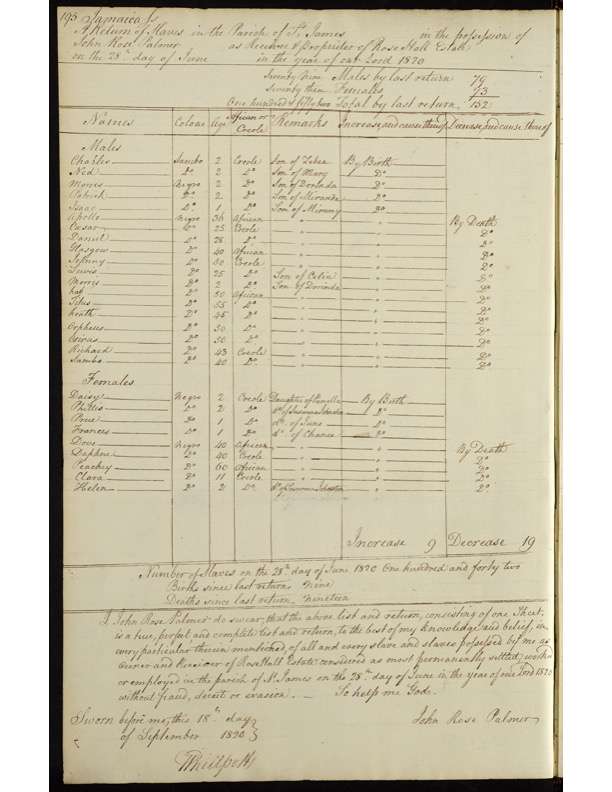 195 Jamaica Ss
A Return of Slaves in the Parish of St. James in the possession of
John Rose Palmer as Receiver & Proprietor of Rose Hall Estate
on the 28th. day of June in the year of our Lord 1820
Seventy Nine Males by last return 79
Seventy three Females 73
One hundred & fifty two Total by last return 152
Names Colour Age African or Creole Remarks Increase and cause thereof Decrease and cause thereof
Males
Charles Sambo 2 Creole Son of By Birth
Ned Do 2 Do Son of Mary Do
Negro 2 Do Son of Dorinda Do
Patrick Do 2 Do Son of Miranda Do
Isaac Do 1 Do Son of Do
Apollo Negro 36 African " " By Death
Caesar Do 25 Creole " " Do
Daniel Do 28 Do " " Do
Glasgow Do 40 African " " Do
Johnny Do Creole " " Do
Lewis Do 25 Do Son of Celia " Do
Morris Do 2 Do Son of Dorinda " Do
Do 50 African " " Do
Titus Do 55 Do " " Do
Do 45 Do " " Do
Orpheus Do 50 Do " " Do
Do 50 Do " " Do
Richard Do 43 Creole " " Do
Sambo Do 40 Do " " Do
Females
Daisy Negro 2 Creole Daughter of By Birth
Phillis Do 2 Do Do of Susanna Johnston Do
Do 1 Do Do of June Do
Frances Do 1 Do Do of Chance Do
Dove Negro 40 African " " By Death
Daphne Do 40 Creole " " Do
Peachey Do 60 African " " Do
Clara Do 11 Creole " " Do
Helen Do 2 Do Do of Susanna Johnston " Do
Increase 9 Decrease 19
Number of Slaves on the 28th. day of June 1820 One hundred and forty two
Births since last return, Nine
Deaths since last return, Nineteen
I John Rose Palmer do swear, that the above list and return, consisting of one Sheet,
is a true, perfect and complete list and return, to the best of my knowledge and belief, in
every particular therein mentioned, of all and every slave and slaves possessed by me as
Owner and Receiver of Rosehall Estate considered as most permanently settled, worked
or employed in the parish of St. James on the 28th. day of June in the year of our Lord 1820
without fraud, deceit or evasion. So help me God.
Sworn before me, this 18th. day } John Rose Palmer
of September 1820 }